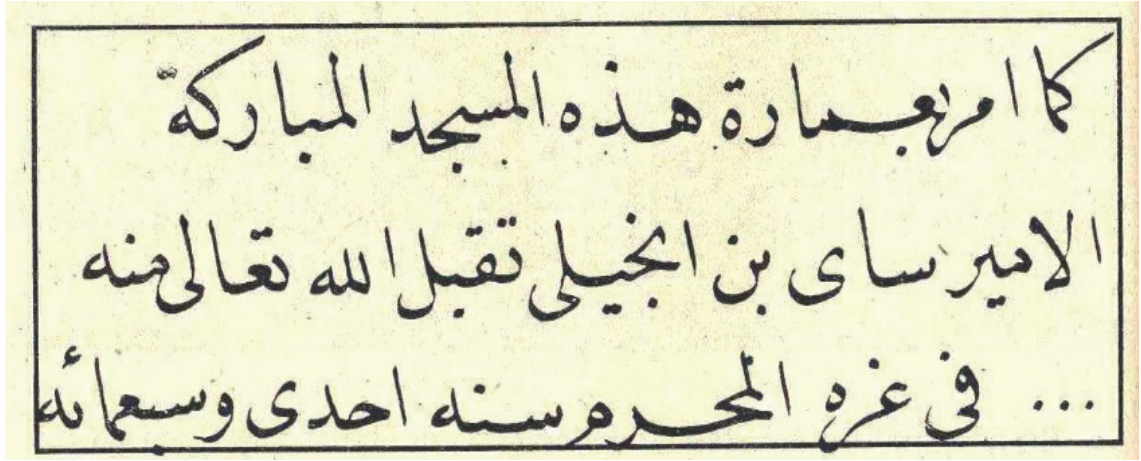 كما امر بعمارة هذه المسجد المباركة
الامير ساى بن الخيلى تقبل الله تعالى منه
... فى غره المحرم سنه احدى وسبعمائه